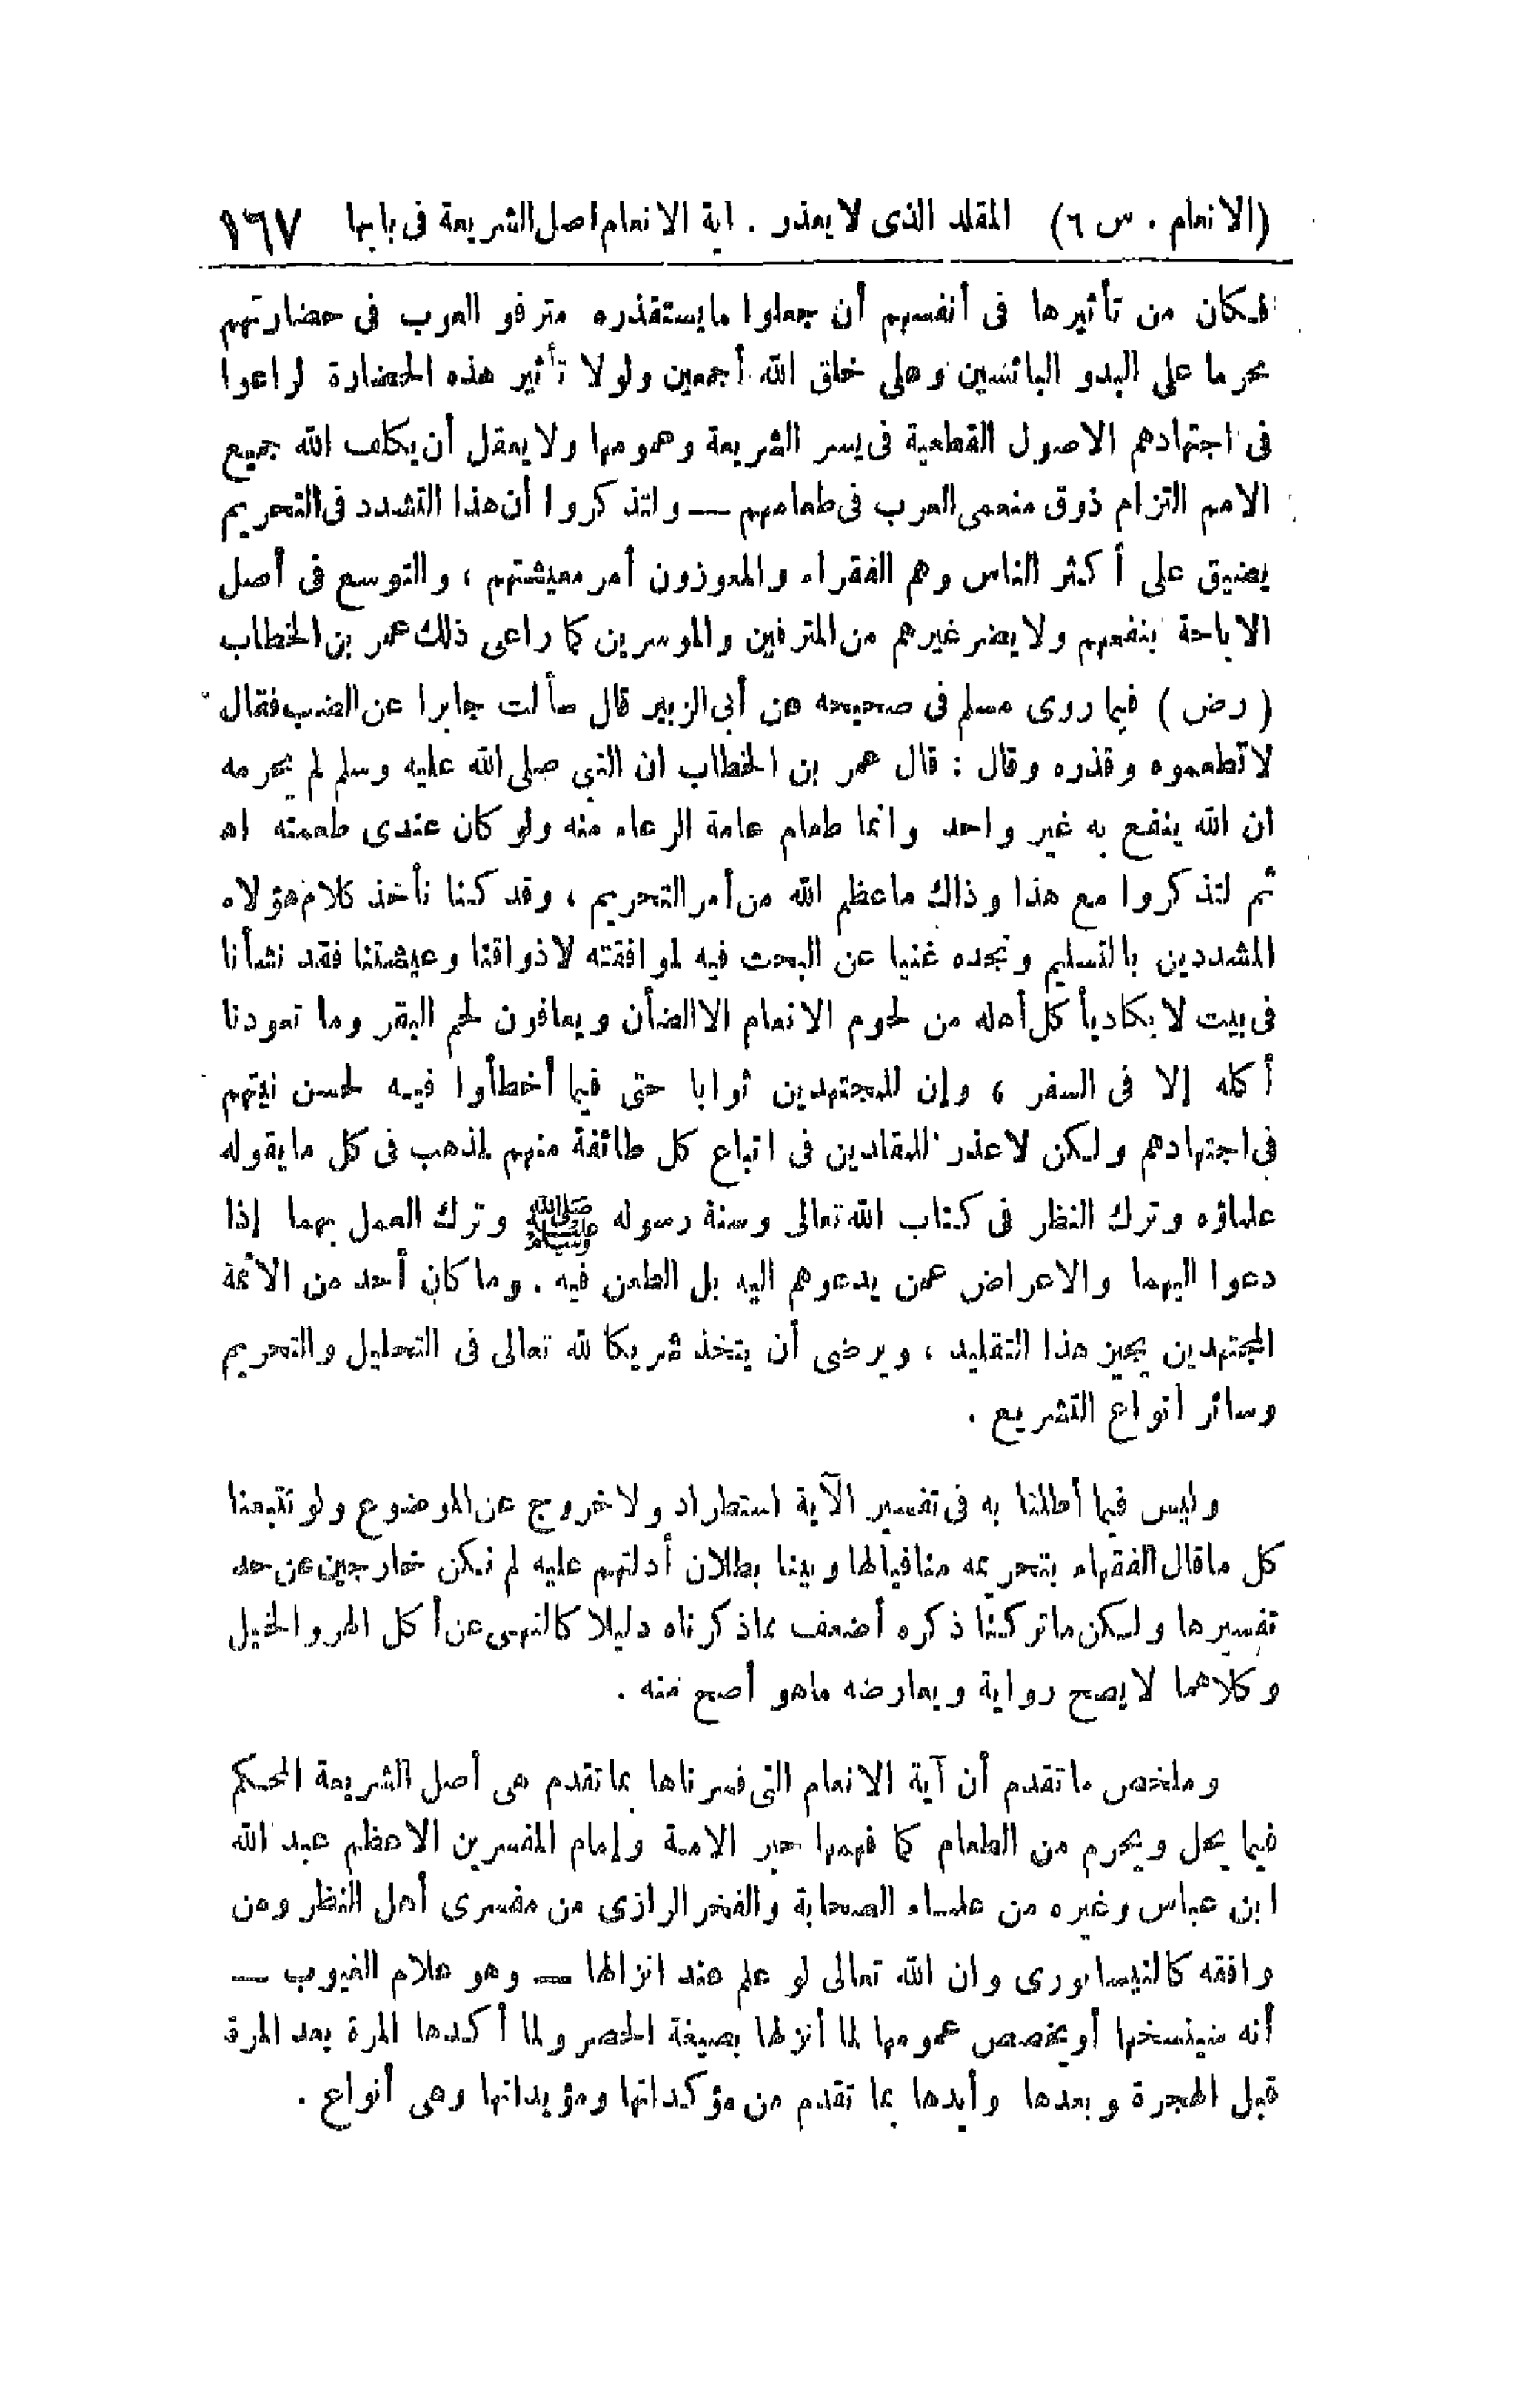 (الانعام . س ٦) المقلد الذى لا يعذر . اية الانعام اصل الشريعة فى بابها ١٦٧
فكان من تأثيرها فى أنفسهم أن جعلوا ما يستقذره مترفو العرب فى حضارتهم
محرما على البدو البائسين وعلى خلق الله أجمعين ولولا تأثير هذه الحضارة لراعوا
فى اجتهادهم الاصول القطعية فى يسر الشريعة وعمومها ولا يعقل أن يكلف الله جميع
الامم التزام ذوق منعمى العرب فى طعامهم — ولتذكروا أن هذا التشدد فى التحريم
يضيق على أكثر الناس وهم الفقراء والمعوزون أمر معيشتهم ، والتوسع فى أصل
الاباحة ينفعهم ولا يضر غيرهم من المترفين والموسرين كما راعى ذلك عمر بن الخطاب
( رض ) فيما روى مسلم فى صحيحه عن أبى الزبير قال سألت جابرا عن الضب فقال
لا تطعموه وقذره وقال : قال عمر بن الخطاب ان النبى صلى الله عليه وسلم لم يحرمه
ان الله ينفع به غير واحد وانما طعام عامة الرعاء منه ولو كان عندى طعمته اه
ثم لتذكروا مع هذا وذاك ما عظم الله من أمر التحريم ، وقد كنا نأخذ كلام هؤلاء
المشددين بالتسليم ونجده غنيا عن البحث فيه لموافقته لاذواقنا وعيشتنا فقد نشأنا
فى بيت لا يكاد يأكل أهله من لحوم الانعام الا الضأن ويعافون لحم البقر وما تعودنا
أكله إلا فى السفر ، وإن للمجتهدين ثوابا حتى فيما أخطأوا فيه لحسن نيتهم
فى اجتهادهم ولكن لا عذر للمقلدين فى اتباع كل طائفة منهم لمذهب فى كل ما يقوله
علماؤه وترك النظر فى كتاب الله تعالى وسنة رسوله ﷺ وترك العمل بهما إذا
دعوا اليهما والاعراض عمن يدعوهم اليه بل الطعن فيه . وما كان أحد من الأئمة
المجتهدين يجيز هذا التقليد ، ويرضى أن يتخذ شريكا لله تعالى فى التحليل والتحريم
وسائر انواع التشريع .
وليس فيما أطلنا به فى تفسير الآية استطراد ولا خروج عن الموضوع ولو تتبعنا
كل ما قال الفقهاء بتحريمه منافيا لها وبينا بطلان أدلتهم عليه لم نكن خارجين عن حد
تفسيرها ولكن ما تركنا ذكره أضعف مما ذكرناه دليلا كالنهى عن أكل الهر والخيل
وكلاهما لا يصح رواية ويعارضه ماهو أصح منه .
وملخص ما تقدم أن آية الانعام التى فسرناها بما تقدم هى أصل الشريعة المحكم
فيما يحل ويحرم من الطعام كما فهمها حبر الامة وإمام المفسرين الاعظم عبد الله
ابن عباس وغيره من علماء الصحابة والفخر الرازى من مفسرى أهل النظر ومن
وافقه كالنيسابورى وان الله تعالى لو علم عند انزالها — وهو علام الغيوب —
أنه سينسخها أو يخصص عمومها لما أنزلها بصيغة الحصر ولما أكدها المرة بعد المرة
قبل الهجرة وبعدها وأيدها بما تقدم من مؤكداتها ومؤيداتها وهى أنواع .